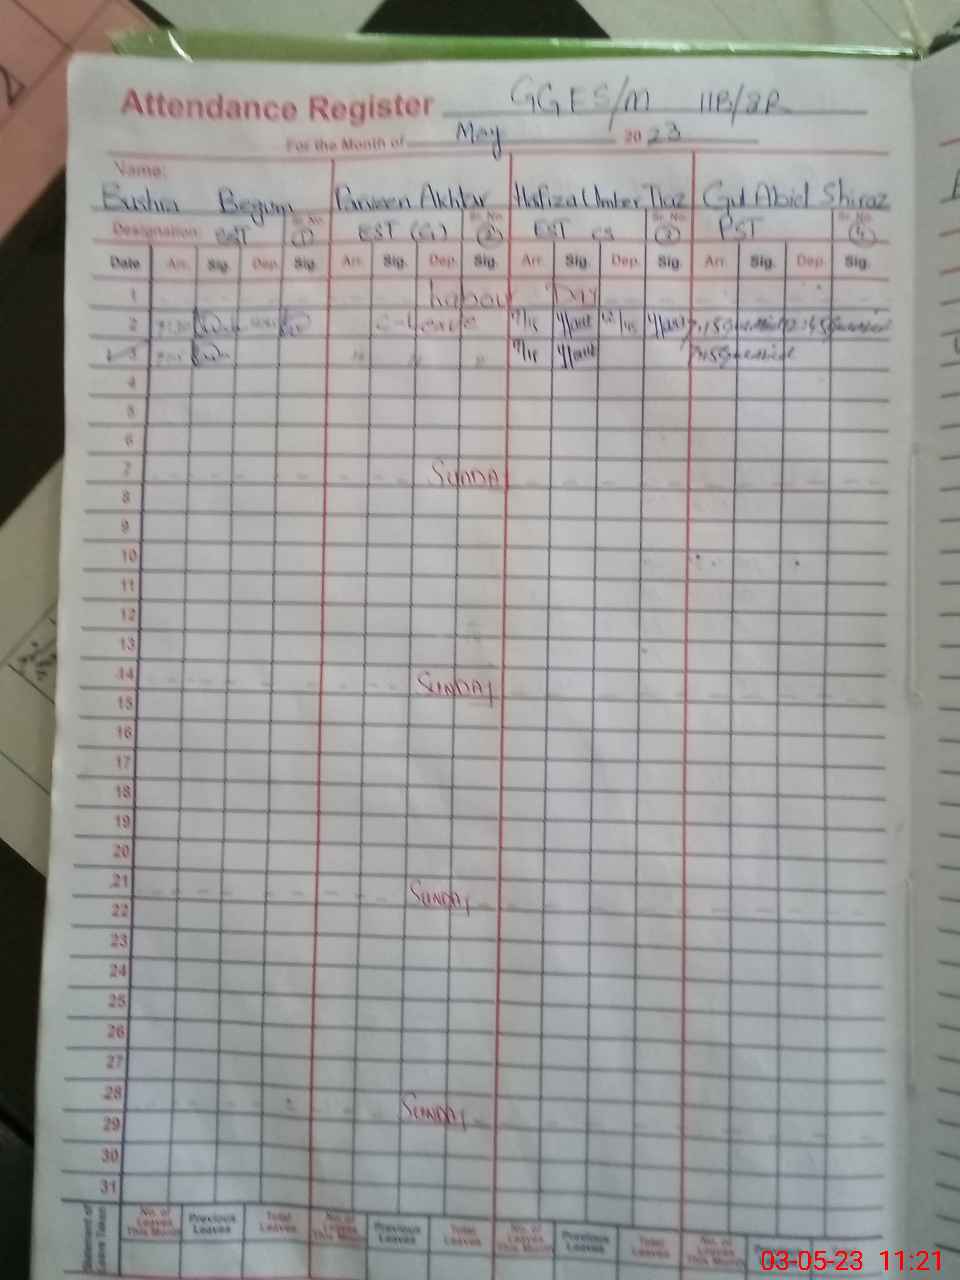 Attendance Register GGES/M 11B/8R
For the Month of May 2023
Name:
Bushra Begum Parveen Akhtar Hafiza Umber Tiaz Gul Abid Shiraz
Designation: EST Sr. No. (1) EST (G) Sr. No. (2) EST Sr. No. (3) PST Sr. No. (4)
Date Arr. Sig. Dep. Sig. Arr. Sig. Dep. Sig. Arr. Sig. Dep. Sig. Arr. Sig. Dep. Sig.
1 Labour Day
2 C-Leave
3 " " "
4
5
6
7 SUNDAY
8
9
10
11
12
13
14 SUNDAY
15
16
17
18
19
20
21 SUNDAY
22
23
24
25
26
27
28 SUNDAY
29
30
31
Statement of Leave Taken No. of Leaves This Month Previous Leaves Total Leaves No. of Leaves This Month Previous Leaves Total Leaves No. of Leaves This Month Previous Leaves Total Leaves No. of Leaves This Month Previous Leaves
03-05-23 11:21